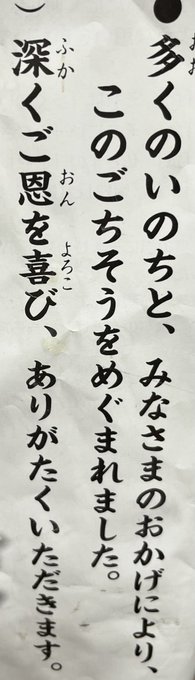 ●多くのいのちと、みなさまのおかげにより、
このごちそうをめぐまれました。
深くご恩を喜び、ありがたくいただきます。
ふか
おん
よろこ